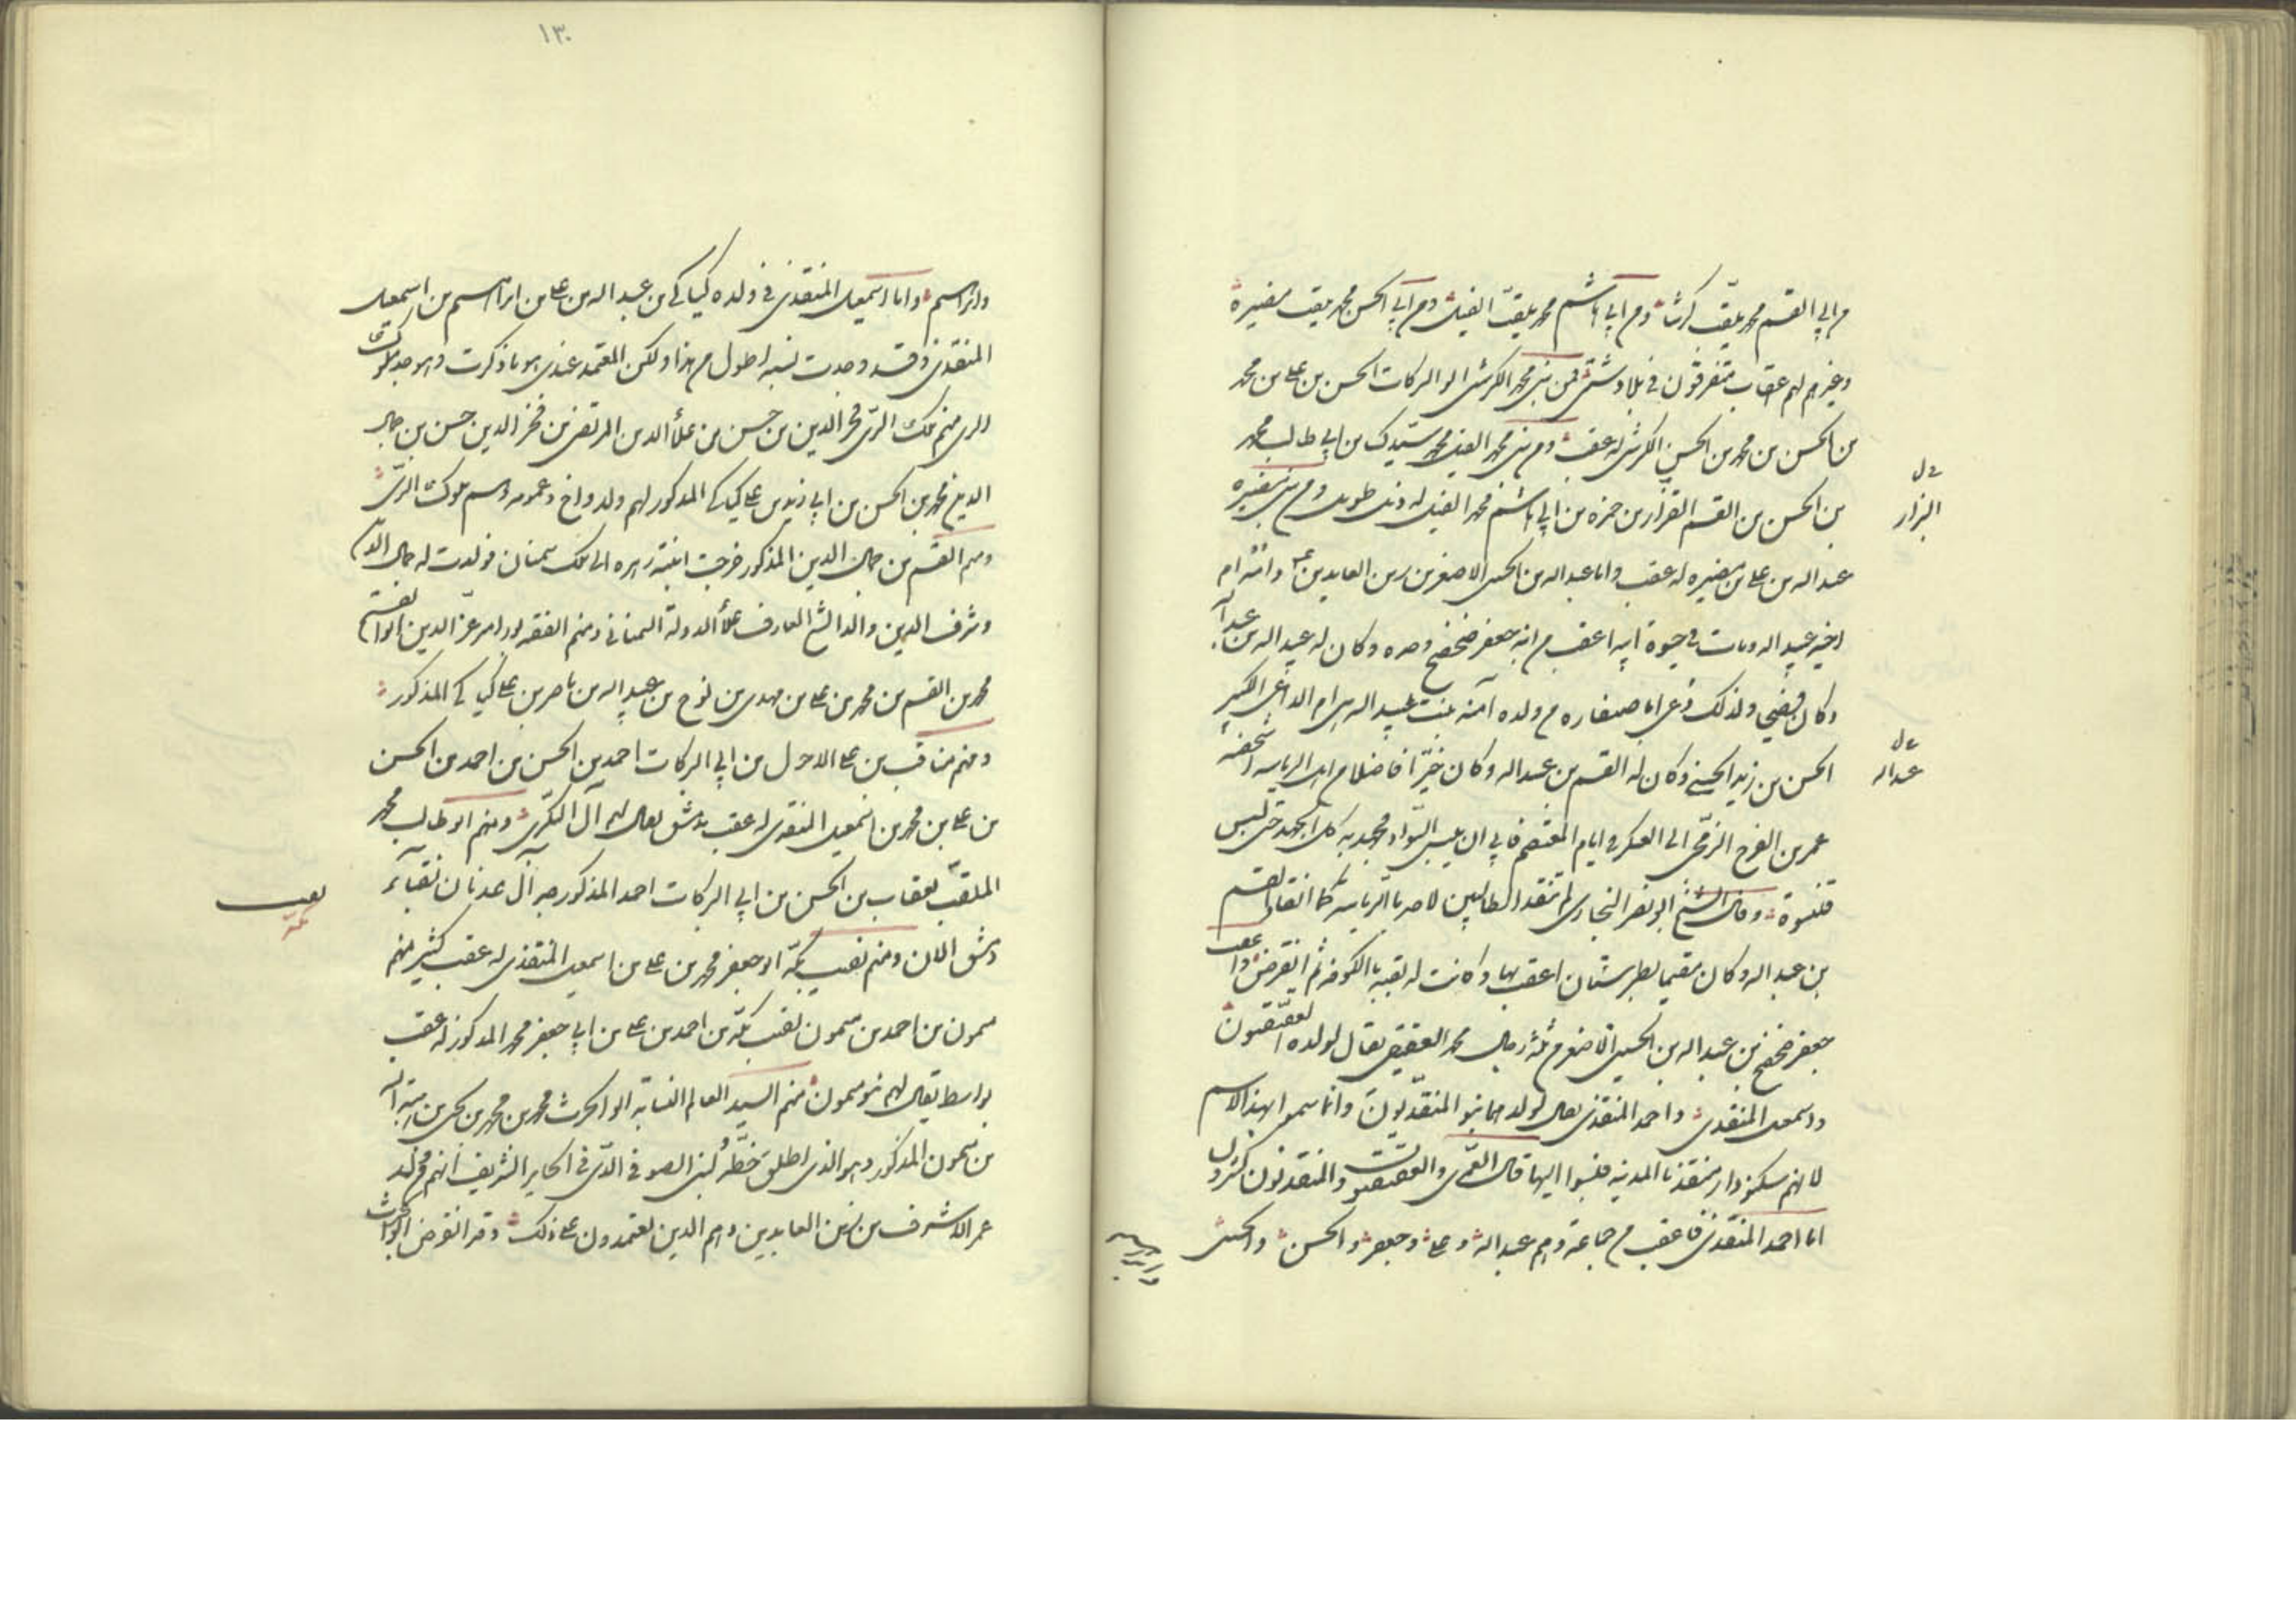 من ابي القسم محمد يلقب كرشا ومن ابي هاشم محمد يلقب الفيل ومن ابي الحسن محمد يلقب مضيرة
وغيرهم لهم اعقاب متفرقون في بلاد شتى فمن بني محمد الكرش ابو البركات الحسن بن علي بن محمد
بن الحسن بن محمد بن الحسن الكرش له عقب ومن بني محمد الفيل محمد ستيدك بن ابي طالب محمد
بن الحسن بن القسم القزار بن حمزه بن ابي هاشم محمد الفيل له ذيل طويل ومن بني مضيره
عبد اله بن علي بن مضيره له عقب واما عبد اله بن الحسين الاصغر بن زين العابدين ع وامه ام
اخيه عبيد اله ومات في حيوة ابيه اعقب من ابنه جعفر صحصح وحده وكان له عبيد اله بن عبد اله
وكان فضيحي ولذلك دعي ابا صفاره من ولده آمنه بنت عبيد اله هي ام الداعي الكبير
الحسن بن زيد الحسني وكان له القسم بن عبد اله وكان خيرا فاضلا من اهل الرياسه اشخصه
عمر بن الفرج الرخجي الى العسكر في ايام المعتصم فابى ان يلبس السواد فجهد به كل الجهد حتى لبس
قلنسوة وقال الشيخ ابو نصر البخاري لم تنقد الطالبيين لاحد بالرياسه كما انقادت للقسم
بن عبد اله وكان مقيما بطبرستان اعقب بها وكانت له بقيه بالكوفه ثم انقرض واعقب
جعفر صحصح بن عبد اله بن الحسين الاصغر من ثلثة رجال محمد العقيقي يقال لولده العقيقيون
واسمعيل المنقذي واحمد المنقذي يقال لولدهما بنو المنقذيون وانما سموا بهذا الاسم
لانهم سكنوا دار منقذ بالمدينه فنسبوا اليها قال العمري والعقيقيون والمنقذيون كثيرون
اما احمد المنقذي فاعقب من جماعة وهم عبد اله وعلي وجعفر والحسن والحسين
خ ل
البزار
خ ل
عبد اله
وابراهيم
١٣٠
وابراهيم واما اسمعيل المنقذي فمن ولده كيا كي بن عبد اله بن علي بن ابراهيم بن اسمعيل
المنقذي وقد وجدت نسبه اطول من هذا ولكن المعتمد عندي هو ما ذكرت وهو جد ملوك
الري منهم ملك الري فخر الدين بن حسن بن علاء الدين المرتضى بن فخر الدين حسن بن جمال
الدين محمد بن الحسن بن ابي زيد بن علي كيا كي المذكور لهم ولد واخ وعمومه وهم ملوك الري
ومنهم القسم بن جمال الدين المذكور خرجت ابنته زهره الى ملك سمنان فولدت له جمال الدين
وشرف الدين والد الشيخ العارف علاء الدولة السمناني ومنهم الفقيه عز الدين ابو القسم
محمد بن القسم بن محمد بن علي بن مهدي بن نوح بن عبيد اله بن ناصر بن علي كيا كي المذكور
ومنهم مناقب بن علي الاحول بن ابي البركات احمد بن الحسن بن احمد بن الحسن
بن علي بن محمد بن اسمعيل المنقذي له عقب بدمشق يقال لهم آل البكري ومنهم ابو طالب محمد
الملقب بعقاب بن الحسن بن ابي البركات احمد المذكور جد آل عدنان نقباء
دمشق الان ومنهم نقيب مكة ابو جعفر محمد بن علي بن اسمعيل المنقذي له عقب كثير منهم
ميمون بن احمد بن ميمون نقيب مكة بن احمد بن علي بن ابي جعفر محمد المذكور له عقب
بواسط يقال لهم بنو ميمون منهم السيد العالم النسابه ابو الحرث محمد بن محمد بن يحيى بن هبة اله
بن ميمون المذكور وهو الذي اطلق خطه لبني الصوفي الذي في الحاير الشريف انهم من ولد
عمر الاشرف بن زين العابدين وهم الذين يعتمدون على ذلك وقد انقرض ابو الحرث
نقيب
مكة